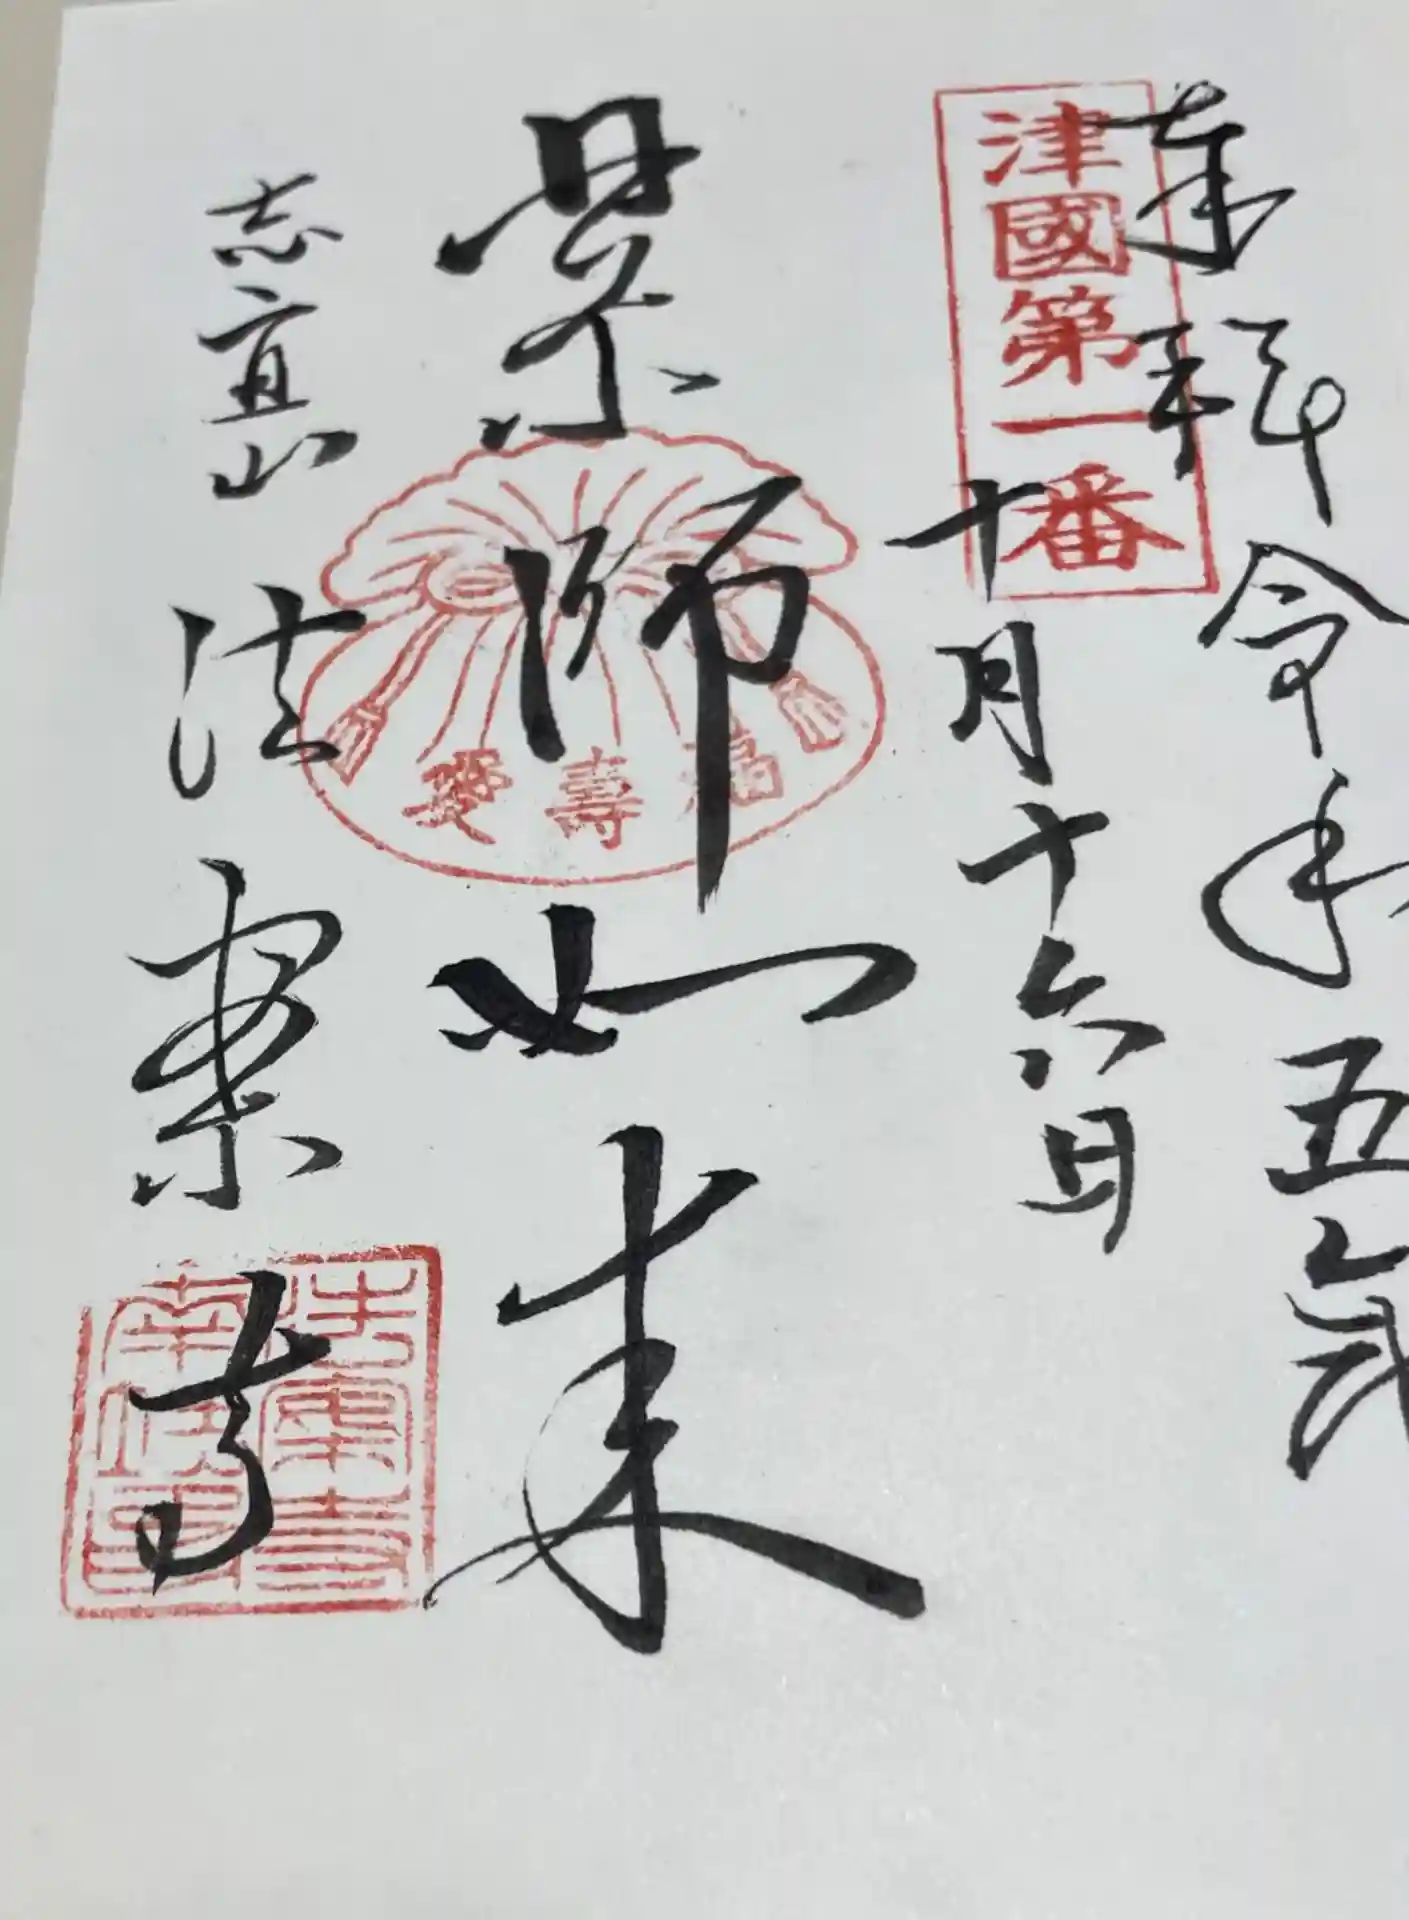 奉拝 令和五年
津國第一番
十月十六日
薬師如来
福壽愛
志宜山 法案寺
法案寺
南坊